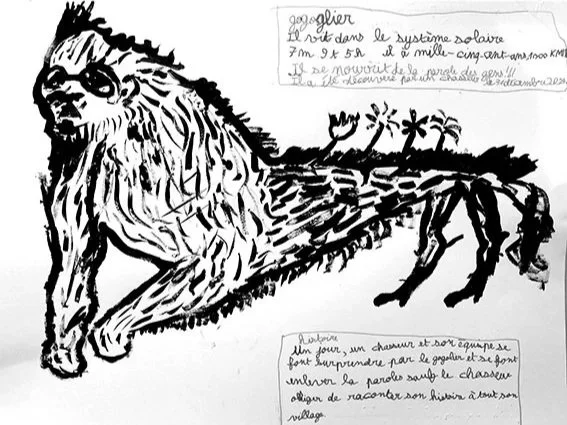 gogoglier
Il vit dans le système solaire
7m 9t 5h il a mille-cinq-cent-ans, 1500 KM
Il se nourrit de la parole des gens!!!
Il a été découvert par un chasseur le 3 décembre
histoire
Un jour, un chasseur et son équipe se
font surprendre par le gogolier et se font
enlever la paroles sauf le chasseur
obliger de raconter son histoire à tout son
village.